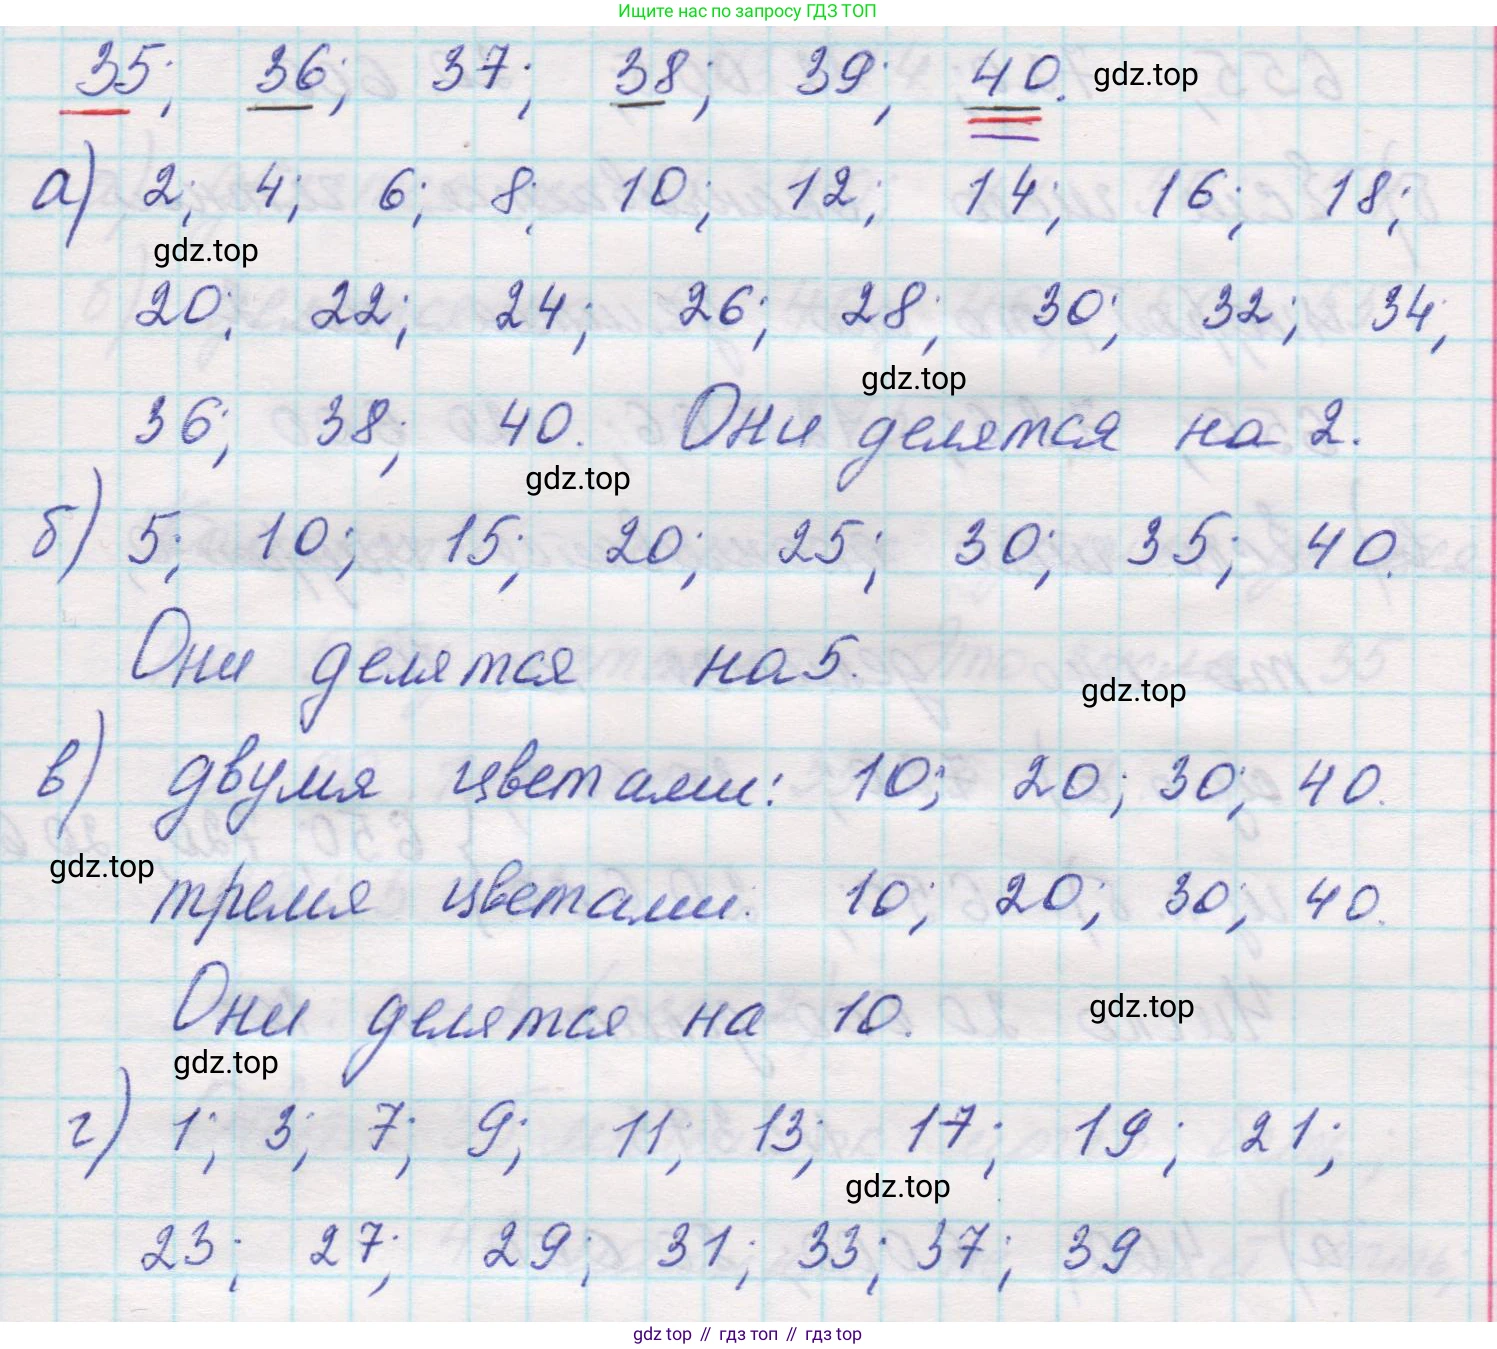 Ищите нас по запросу ГДЗ ТОП
35; 36; 37; 38; 39; 40. gdz.top
а) 2; 4; 6; 8; 10; 12; 14; 16; 18;
gdz.top
20; 22; 24; 26; 28; 30; 32; 34;
gdz.top
36; 38; 40. Они делятся на 2.
gdz.top
б) 5; 10; 15; 20; 25; 30; 35; 40.
Они делятся на 5.
gdz.top
в) двумя цветами: 10; 20; 30; 40.
gdz.top
тремя цветами: 10; 20; 30; 40.
Они делятся на 10.
gdz.top
gdz.top
г) 1; 3; 7; 9; 11; 13; 17; 19; 21;
gdz.top
23; 27; 29; 31; 33; 37; 39
gdz top // гдз топ // gdz top